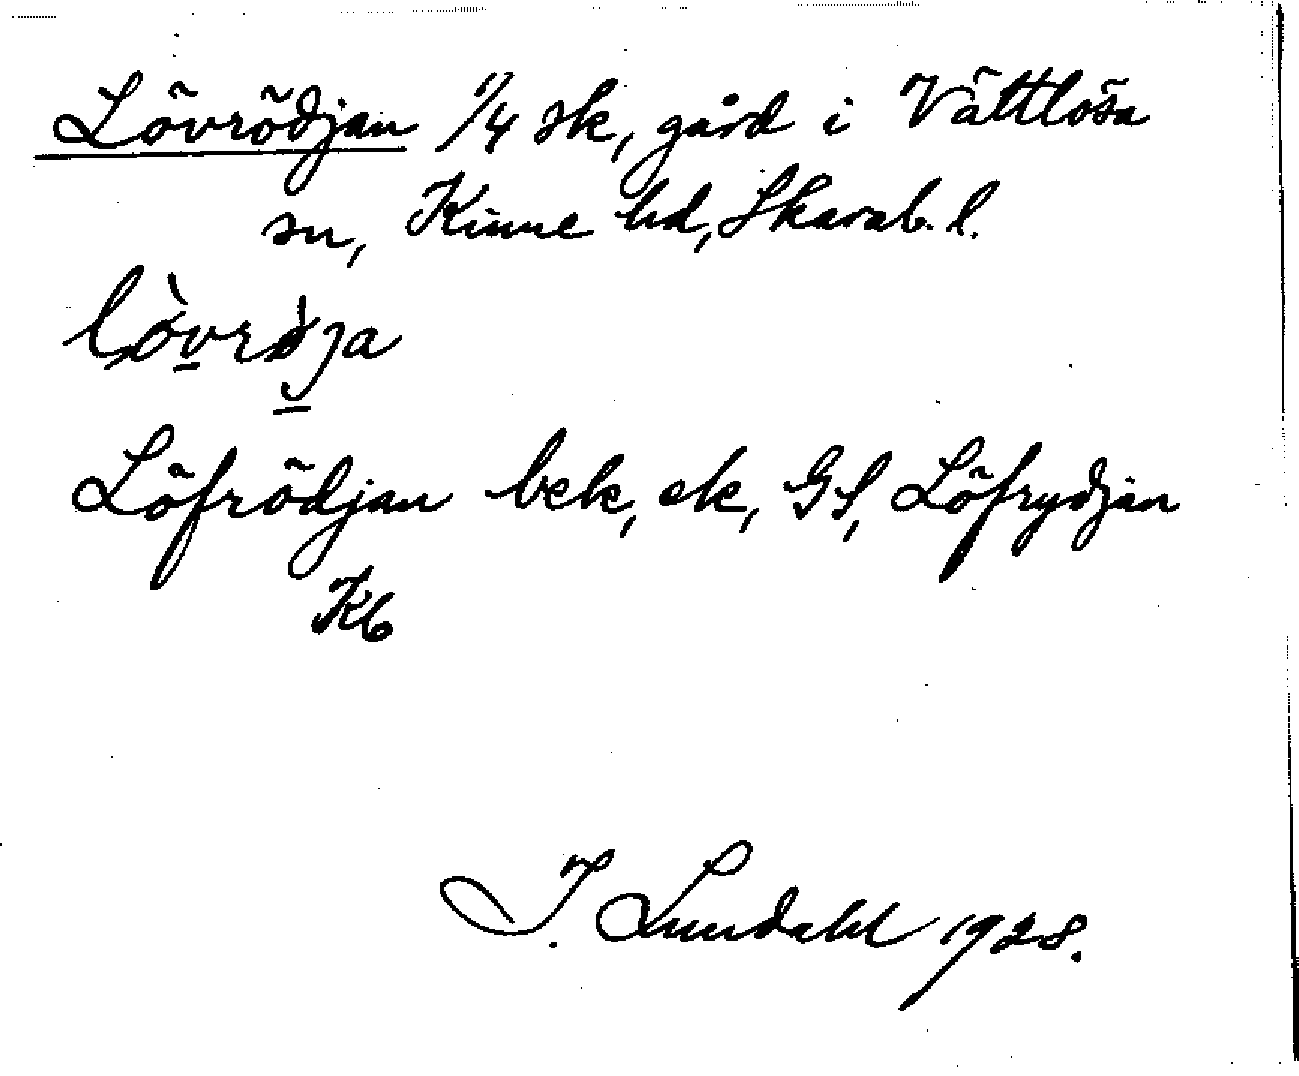 Lövrödjan 1/4 sk, gård i Vättlösa
sn, Kinne hd, Skarab. l.
lòvrɵ̀ja
Löfrödjan bek, ek, GS, Löfrydjan
Kb
I. Lundahl 1928.